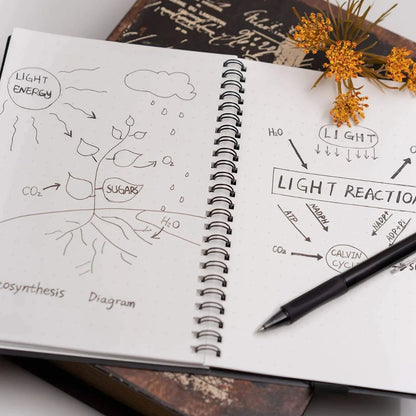 LIGHT
ENERGY
O₂
CO₂
SUGARS
H₂O
osynthesis Diagram
H₂O
LIGHT
O
LIGHT REACTION
ATP
NADPH
NADP+
ADP+Pi
CO₂
CALVIN
CYCL